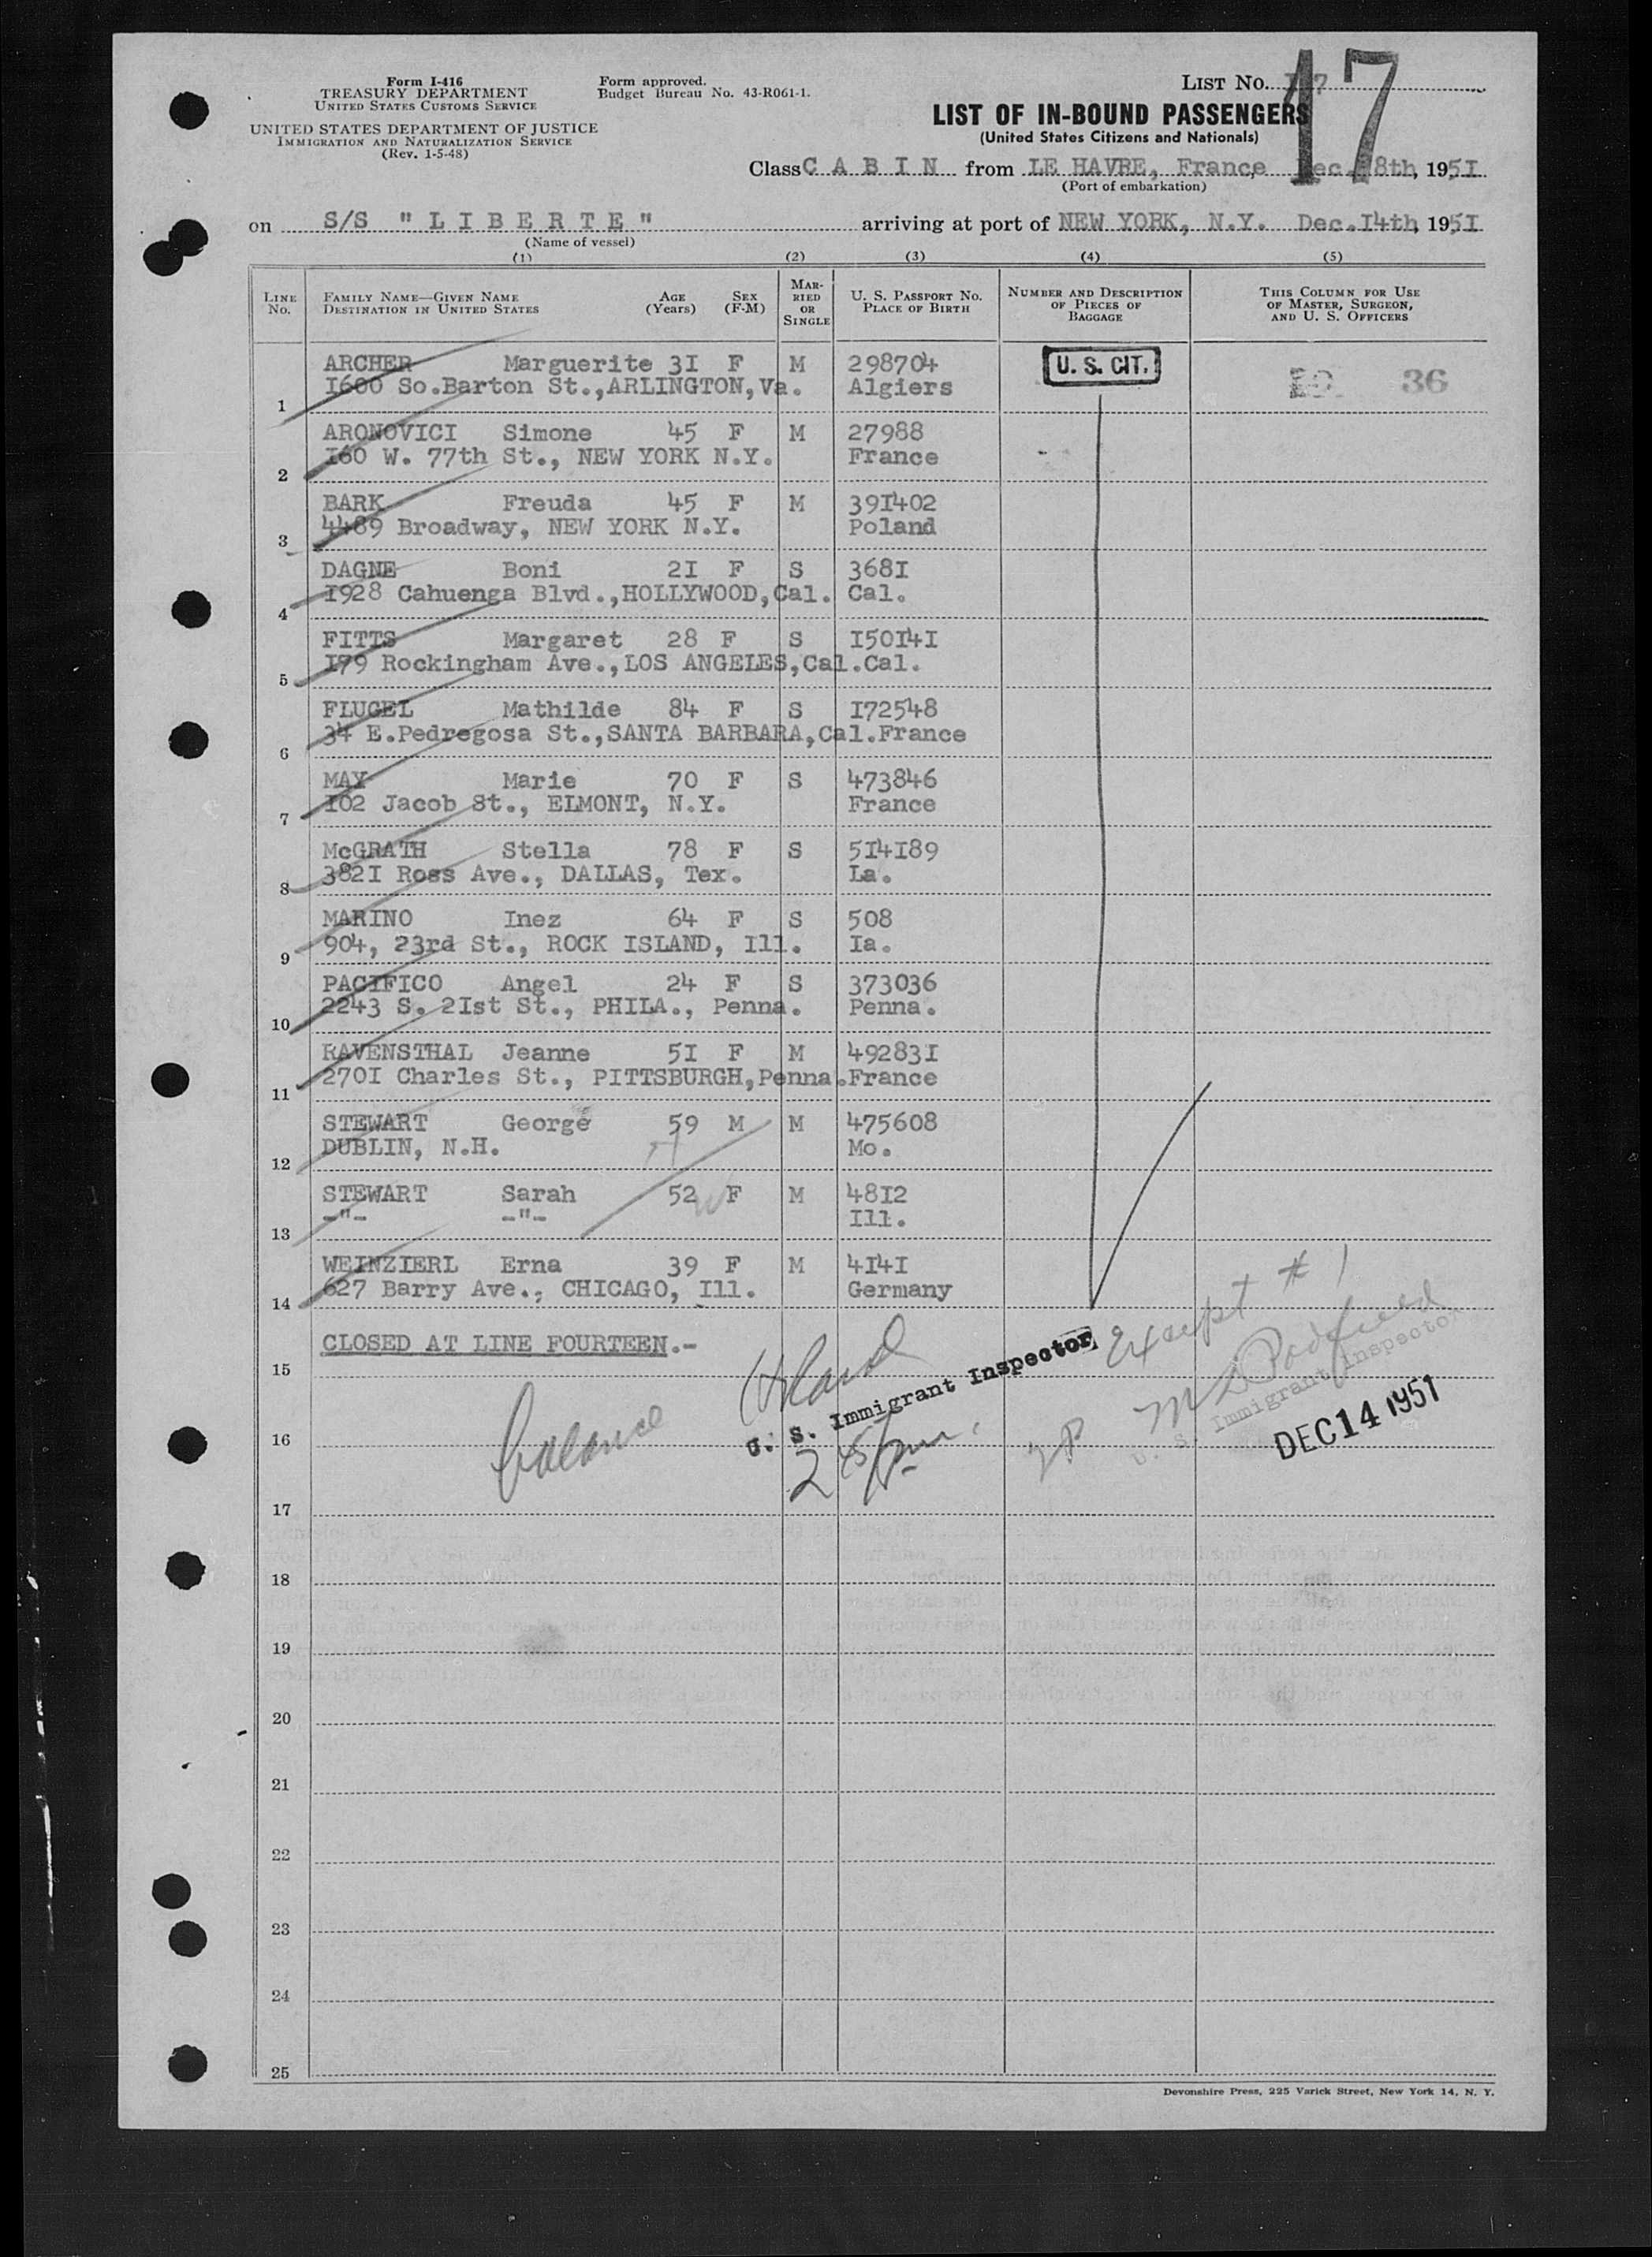 Form I-416
TREASURY DEPARTMENT
UNITED STATES CUSTOMS SERVICE
UNITED STATES DEPARTMENT OF JUSTICE
IMMIGRATION AND NATURALIZATION SERVICE
(Rev. 1-5-48)
Form approved.
Budget Bureau No. 43-R061-1.
LIST No. 17
LIST OF IN-BOUND PASSENGERS
(United States Citizens and Nationals)
Class C A B I N from LE HAVRE, France, Dec. 8th, 1951
(Port of embarkation)
on S/S "L I B E R T E" arriving at port of NEW YORK, N.Y. Dec.I4th, 195I
(Name of vessel)
(1) (2) (3) (4) (5)
LINE No. FAMILY NAME—GIVEN NAME DESTINATION IN UNITED STATES AGE (Years) SEX (F-M) MARRIED OR SINGLE U. S. PASSPORT No. PLACE OF BIRTH NUMBER AND DESCRIPTION OF PIECES OF BAGGAGE THIS COLUMN FOR USE OF MASTER, SURGEON, AND U. S. OFFICERS
ARCHER Marguerite 3I F M 298704 U. S. CIT. 36
1 I600 So.Barton St.,ARLINGTON,Va. Algiers
ARONOVICI Simone 45 F M 27988
2 I60 W. 77th St., NEW YORK N.Y. France
BARK Freuda 45 F M 39I402
3 4489 Broadway, NEW YORK N.Y. Poland
DAGNE Boni 2I F S 368I
4 I928 Cahuenga Blvd.,HOLLYWOOD,Cal. Cal.
FITTS Margaret 28 F S I50I4I
5 I79 Rockingham Ave.,LOS ANGELES,Cal.Cal.
FLUGEL Mathilde 84 F S I72548
6 34 E.Pedregosa St.,SANTA BARBARA,Cal.France
MAY Marie 70 F S 473846
7 I02 Jacob St., ELMONT, N.Y. France
McGRATH Stella 78 F S 5I4I89
8 382I Ross Ave., DALLAS, Tex. La.
MARINO Inez 64 F S 508
9 904, 23rd St., ROCK ISLAND, Ill. Ia.
PACIFICO Angel 24 F S 373036
10 2243 S. 2Ist St., PHILA., Penna. Penna.
RAVENSTHAL Jeanne 5I F M 49283I
11 270I Charles St., PITTSBURGH,Penna.France
STEWART George 59 M M 475608
12 DUBLIN, N.H. Mo.
STEWART Sarah 52 F M 48I2
13 -"- -"- Ill.
WEINZIERL Erna 39 F M 4I4I
14 627 Barry Ave., CHICAGO, Ill. Germany
Except # 1
15 CLOSED AT LINE FOURTEEN.-
U. S. Immigrant Inspector
U. S. Immigrant Inspector
16 balance DEC 14 1951
17
18
19
20
21
22
23
24
25
Devonshire Press, 225 Varick Street, New York 14, N. Y.